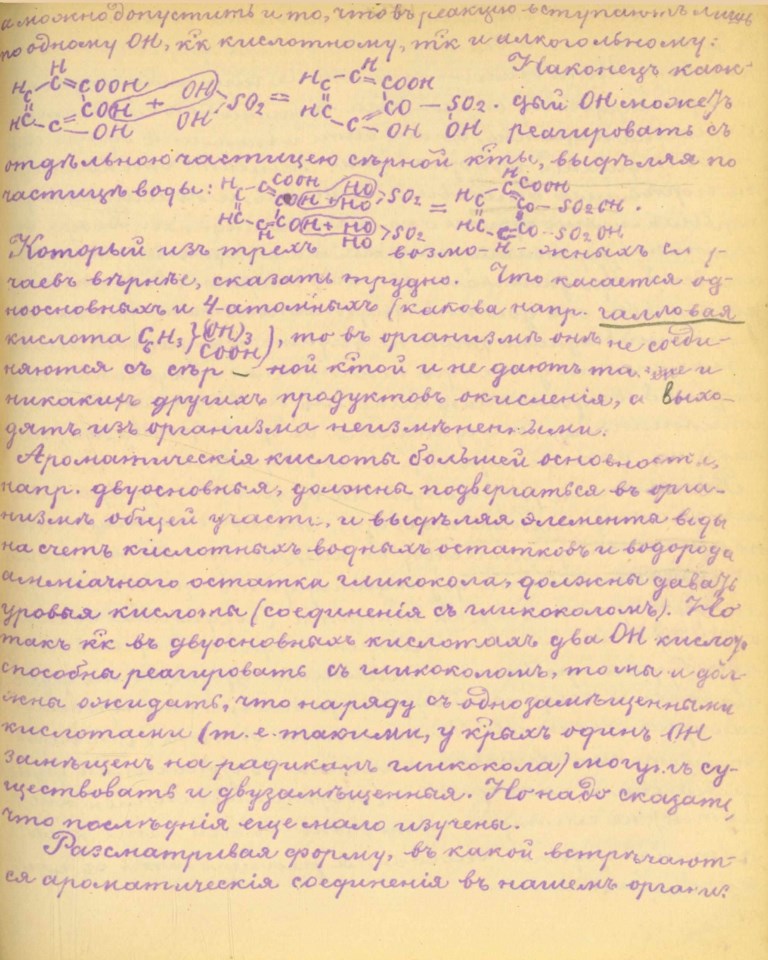 а можно допустить и то, что въ реакцію вступаютъ лишь
по одному ОН, к͡к кислотному, т͡к и алкогольному:
H H C C COOH H C C COH + OH OH SO2 = H H C C COOH H C C CO — SO2 . OH OH Наконецъ каж-
дый ОН можетъ
реагировать съ
отдѣльною частицею сѣрной к͡ты, выдѣляя по
частицѣ воды: H C C COOH H C C OH + HO HO > SO2 OH + HO HO > SO2 = H H C C COOH H C C CO — SO2OH CO — SO2OH .
Который изъ трехъ возмо- жныхъ слу-
чаевъ вѣрнѣе, сказать трудно. Что касается од-
ноосновныхъ и 4-атомныхъ (какова напр. галловая
кислота C6H3}(OH)3 COOH), то въ организмѣ онѣ не соеди-
няются съ сѣр — ной к͡той и не даютъ и
никакихъ другихъ продуктовъ окисленія, а выхо-
дятъ изъ организма неизмѣненными.
Ароматическія кислоты большей основности,
напр. двуосновныя, должны подвергаться въ орга-
низмѣ общей участи, и выдѣляя элемента воды
на счетъ кислотныхъ водныхъ остатковъ и водорода
амміачнаго остатка гликокола, должны давать
уровыя кислоты (соединенія съ гликоколомъ). Но
такъ к͡к въ двуосновныхъ кислотахъ два ОН кислот.
способны реагировать съ гликоколомъ, то мы и дол-
жны ожидать, что наряду съ однозамѣщенными
кислотами (т. е. такими, у к͡рыхъ одинъ ОН
замѣщенъ на радикалъ гликокола) могутъ су-
ществовать и двузамѣщенныя. Но надо сказать,
что послѣднія еще мало изучены.
Разсматривая форму, въ какой встрѣчают-
ся ароматическія соединенія въ нашемъ органи: